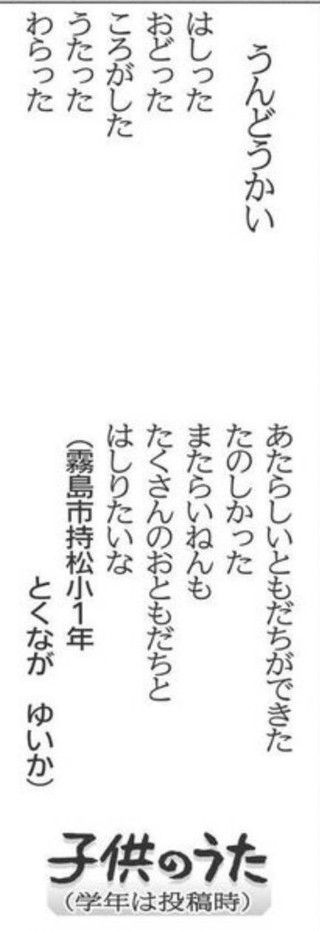 うんどうかい
はしった
おどった
ころがした
うたった
わらった
あたらしいともだちができた
たのしかった
またらいねんも
たくさんのおともだちと
はしりたいな
（霧島市持松小1年
とくなが　ゆいか）
子供のうた
（学年は投稿時）